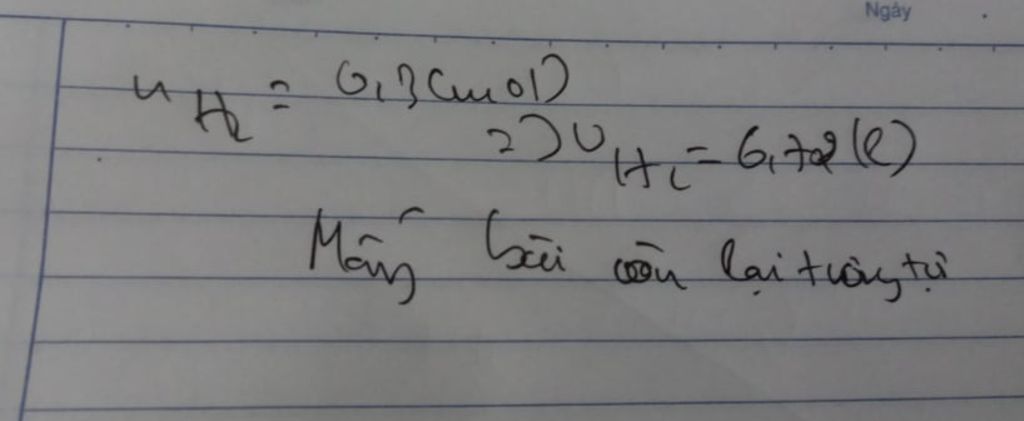 Ngày
n H2 = 0,3 (mol)
=> V H2 = 6,72 (l)
Mấy bài còn lại tương tự